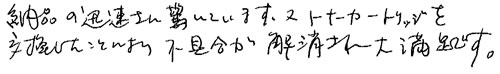 納品の迅速さに驚いています。又トナーカートリッジを
交換したことにより不具合が解消され大満足です。